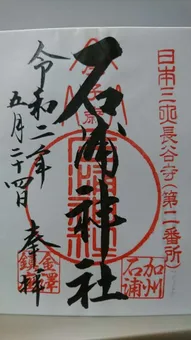 日本三所長谷寺(第一番所)
加州
石浦
石浦神社
奉拝
令和二年
五月二十四日
金澤
鎮守